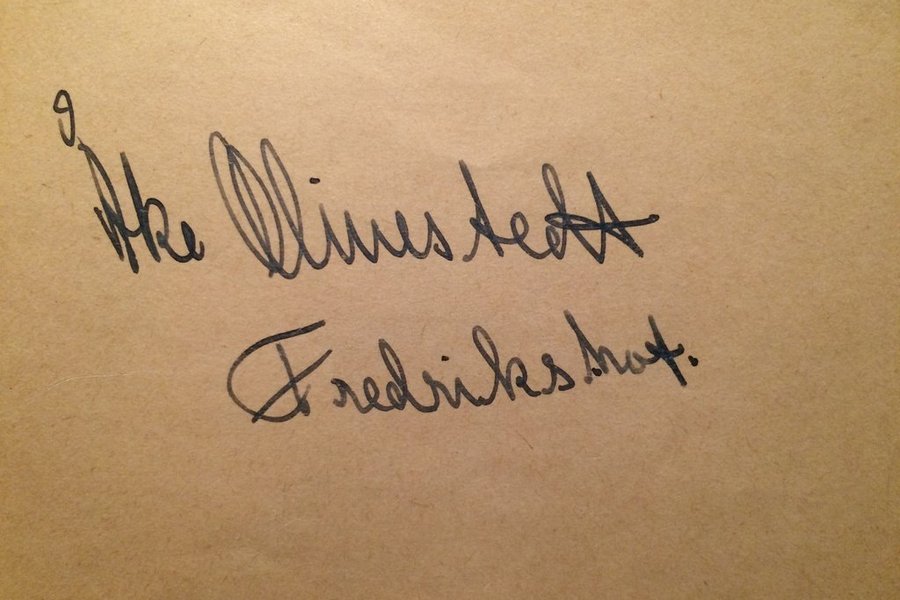 Åke Olinestedt
Fredrikshof.